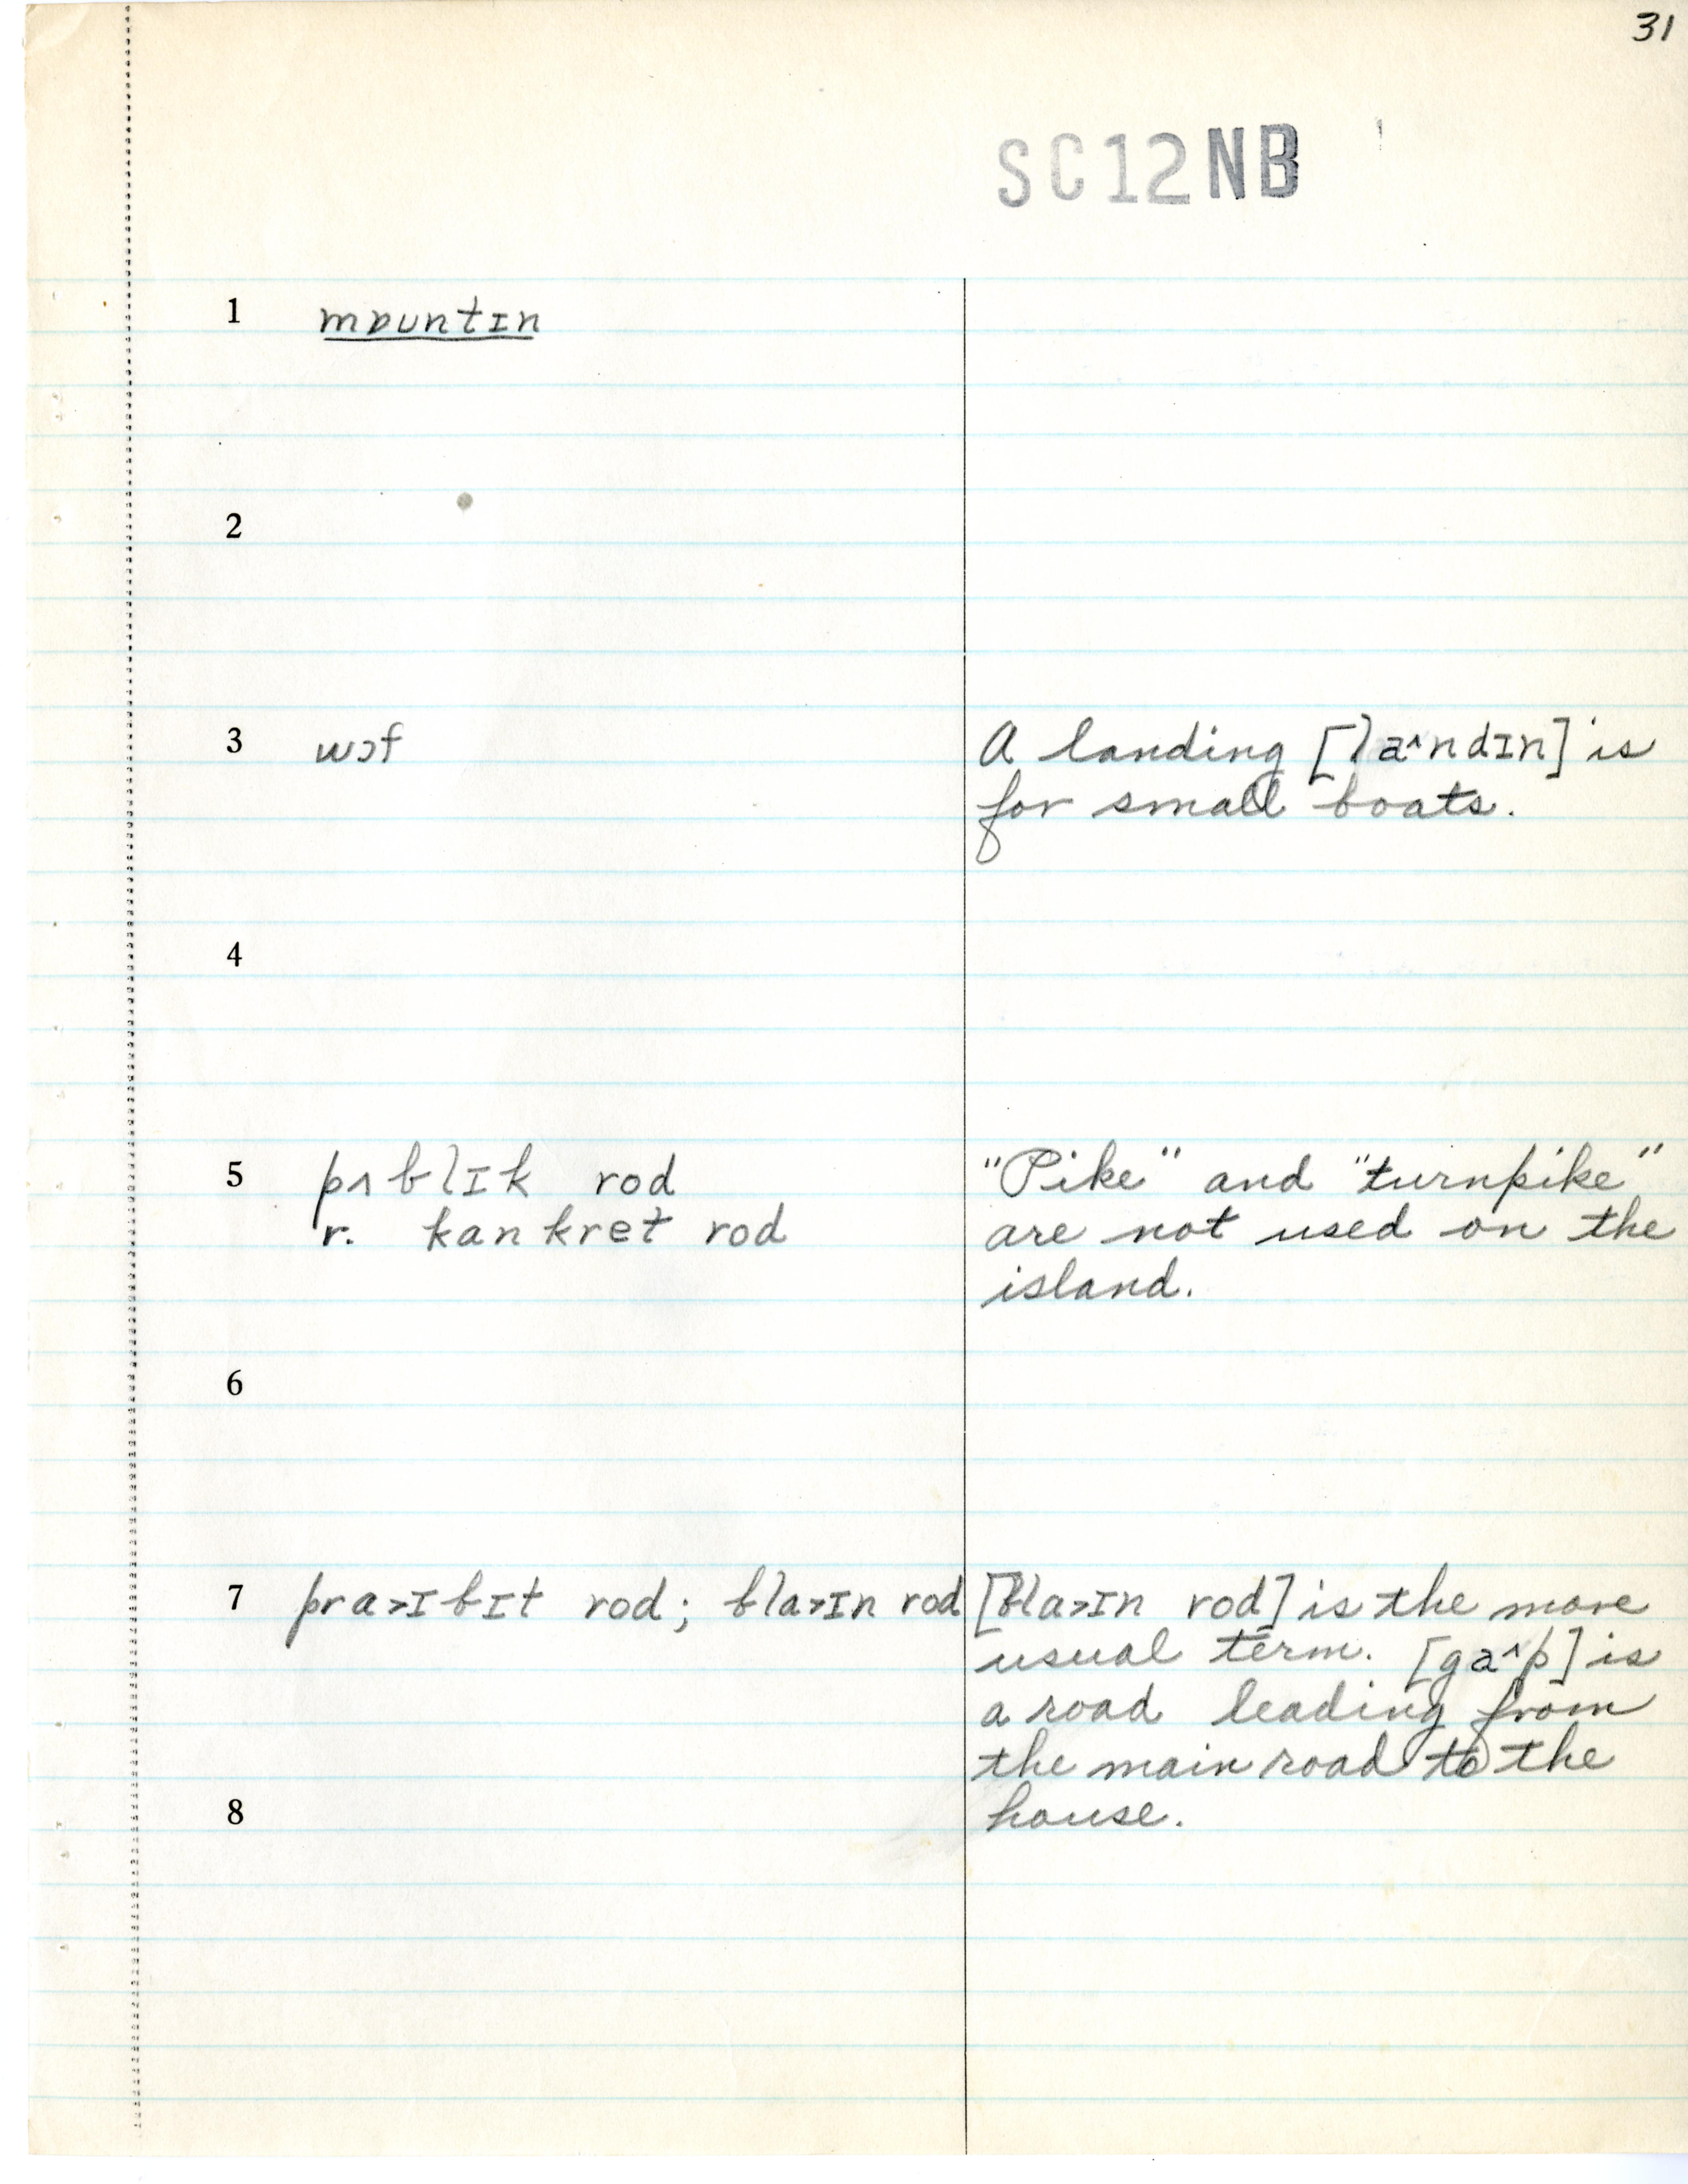 31
SC12NB
1 mɒuntɪn
2
3 wɔf A landing [la^ndɪn] is
for small boats.
4
5 pʌblɪk rod "Pike" and "turnpike"
r. kankret rod are not used on the
island.
6
7 pra>ɪbɪt rod; bla>ɪn rod [bla>ɪn rod] is the more
usual term. [ga^p] is
a road leading from
the main road to the
8 house.